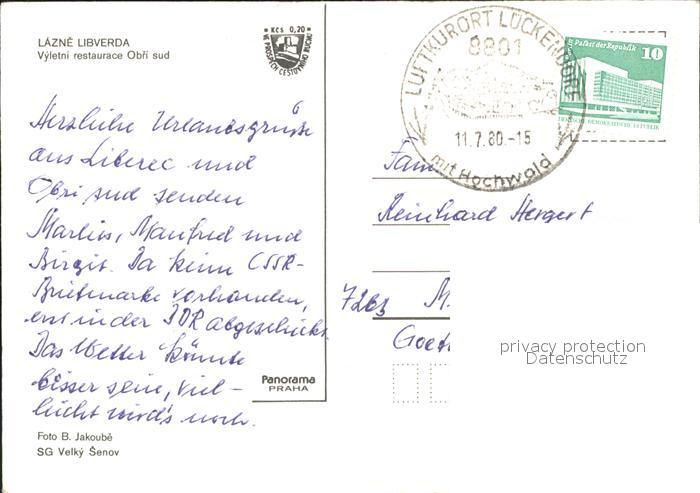 LÁZNĚ LIBVERDA
Výletní restaurace Obří sud
Kčs 0,20
VE PROSPĚCH CESTOVNÍHO RUCHU
Herzliche Urlaubsgrüße
aus Liberec und
Obři sud senden
Marlies, Manfred und
Birgit. Da keine ČSSR-
Briefmarke vorhanden,
erst in der DDR abgeschickt.
Das Wetter könnte
besser sein, viel-
leicht wird's noch.
Foto B. Jakoubě
SG Velký Šenov
Panorama
PRAHA
LUFTKURORT LÜCKENDORF
8801
11.7.80.-15
mit Hochwald
Palast der Republik
10
DEUTSCHE DEMOKRATISCHE REPUBLIK
Fam
Reinhard Hergert
7263 M.
Goet
privacy protection
Datenschutz